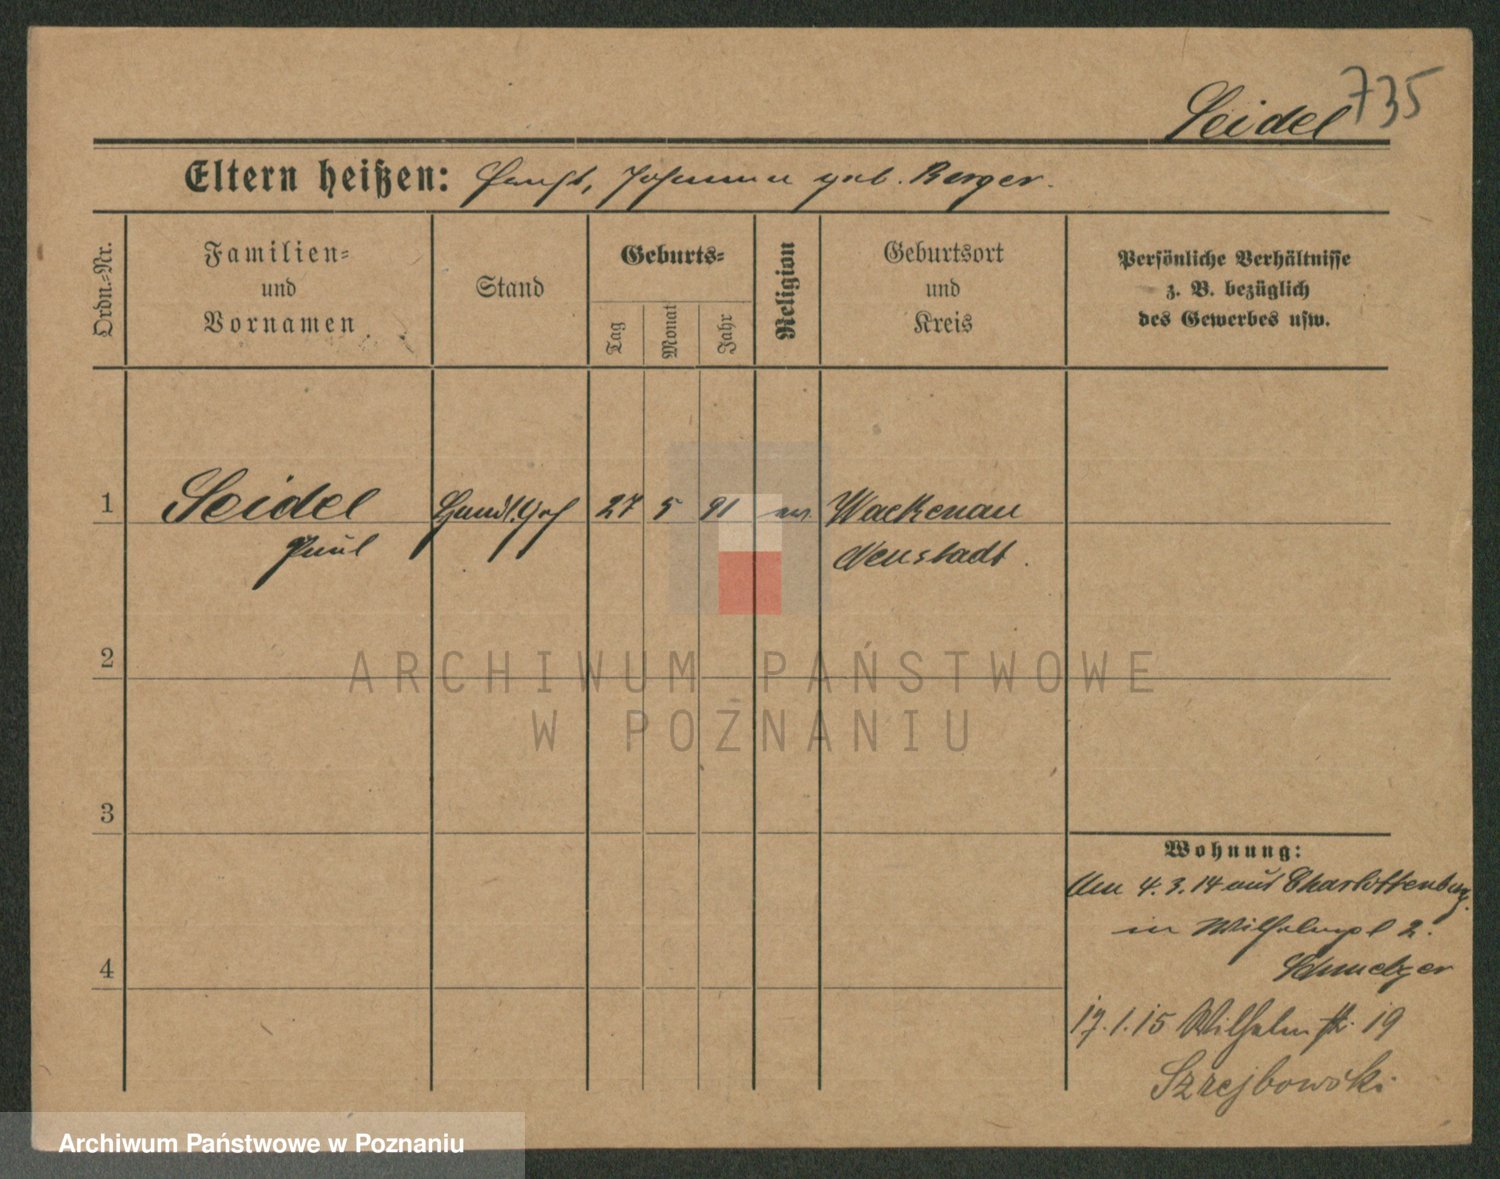 735
Seidel
Eltern heißen: August, Johanna geb. Berger.
Ordn.-Nr.
Familien-
und
Vornamen
Stand
Geburts-
Tag
Monat
Jahr
Religion
Geburtsort
und
Kreis
Persönliche Verhältnisse
z. B. bezüglich
des Gewerbes usw.
1 Seidel Handl.Geh 27 5 91 ev. Wackenau
Paul Neustadt.
2
3
4
Wohnung:
Am 4.3.14 aus Charlottenburg.
in Wilhelmpl 2.
Schmelzer
17.1.15 Wilhelmstr. 19
Szrejbowski
ARCHIWUM PAŃSTWOWE
W POZNANIU
Archiwum Państwowe w Poznaniu